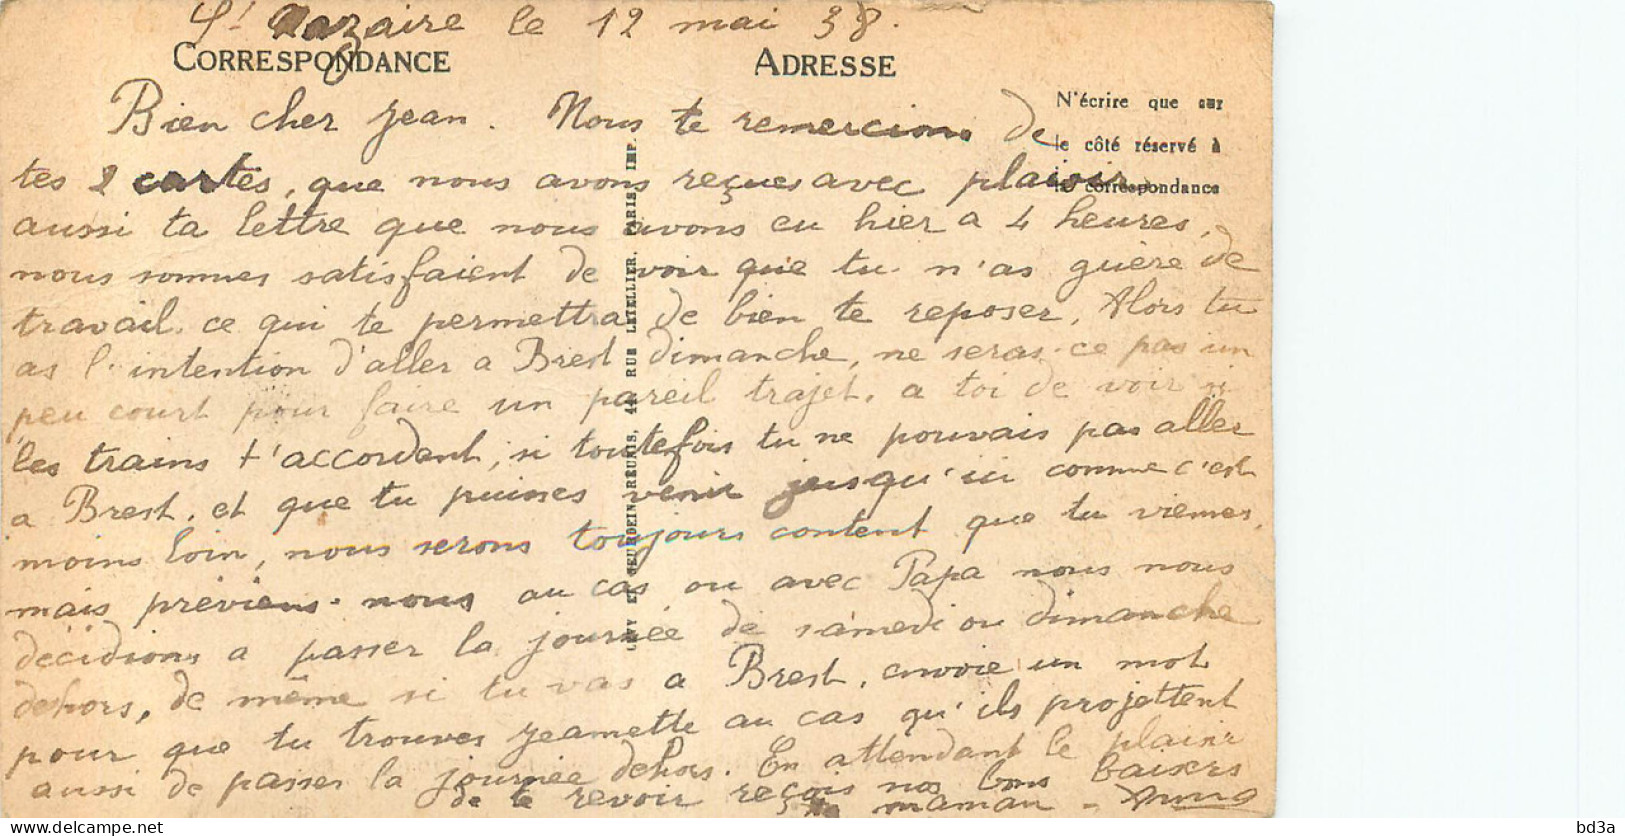 St Nazaire le 12 mai 38.
CORRESPONDANCE
ADRESSE
N'écrire que sur
le côté réservé à
la correspondance
Bien cher Jean. Nous te remercions de
tes 2 cartes, que nous avons reçues avec plaisir,
aussi ta lettre que nous avons eu hier a 4 heures,
nous sommes satisfaient de voir que tu n'as guère de
travail, ce qui te permettra de bien te reposer, Alors tu
as l'intention d'aller a Brest dimanche, ne seras-ce pas un
peu court pour faire un pareil trajet, a toi de voir si
les trains t'accordent, si toutefois tu ne pouvais pas aller
a Brest, et que tu puisses venir jusqu'ici comme c'est
moins loin, nous serons toujours content que tu viennes,
mais préviens-nous au cas ou avec Papa nous nous
décidions a passer la journée de samedi ou dimanche
dehors, de même si tu vas a Brest, envoie un mot
pour que tu trouves Jeannette au cas qu'ils projettent
aussi de passer la journée dehors. En attendant le plaisir
de te revoir reçois nos bons baisers
ta maman - Anna
LEVY ET NEURDEIN RÉUNIS, 44 RUE LETELLIER, PARIS IMP.
bd3a